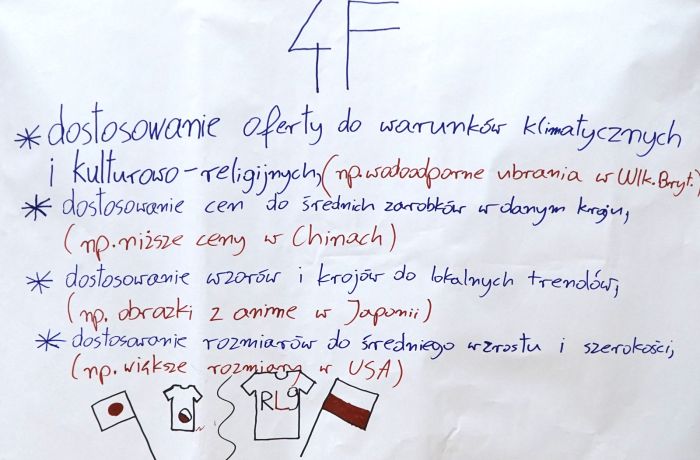 4F
* dostosowanie oferty do warunków klimatycznych
i kulturowo-religijnych, (np. wodoodporne ubrania w Wlk. Bryt.)
* dostosowanie cen do średnich zarobków w danym kraju,
(np. niższe ceny w Chinach)
* dostosowanie wzorów i krojów do lokalnych trendów,
(np. obrazki z anime w Japonii)
* dostosowanie rozmiarów do średniego wzrostu i szerokości,
(np. większe rozmiary w USA)
RL9